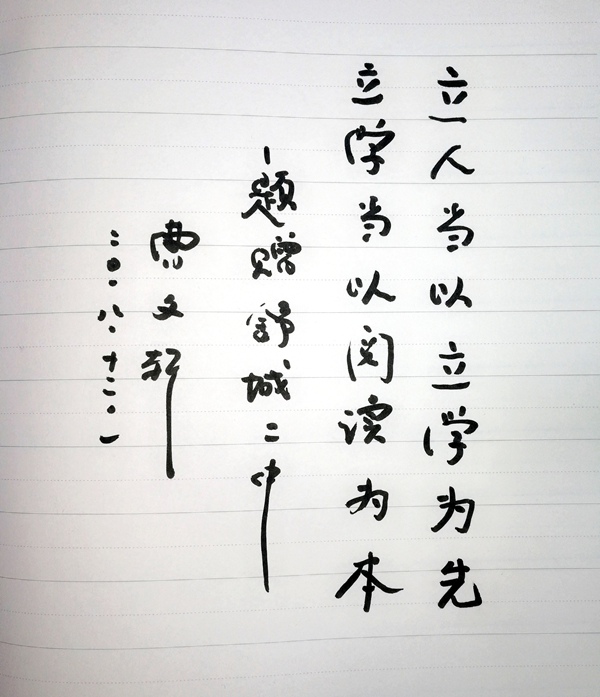 立人当以立学为先
立学当以阅读为本
题赠舒城二中
曹文轩
二〇一八.十二.一